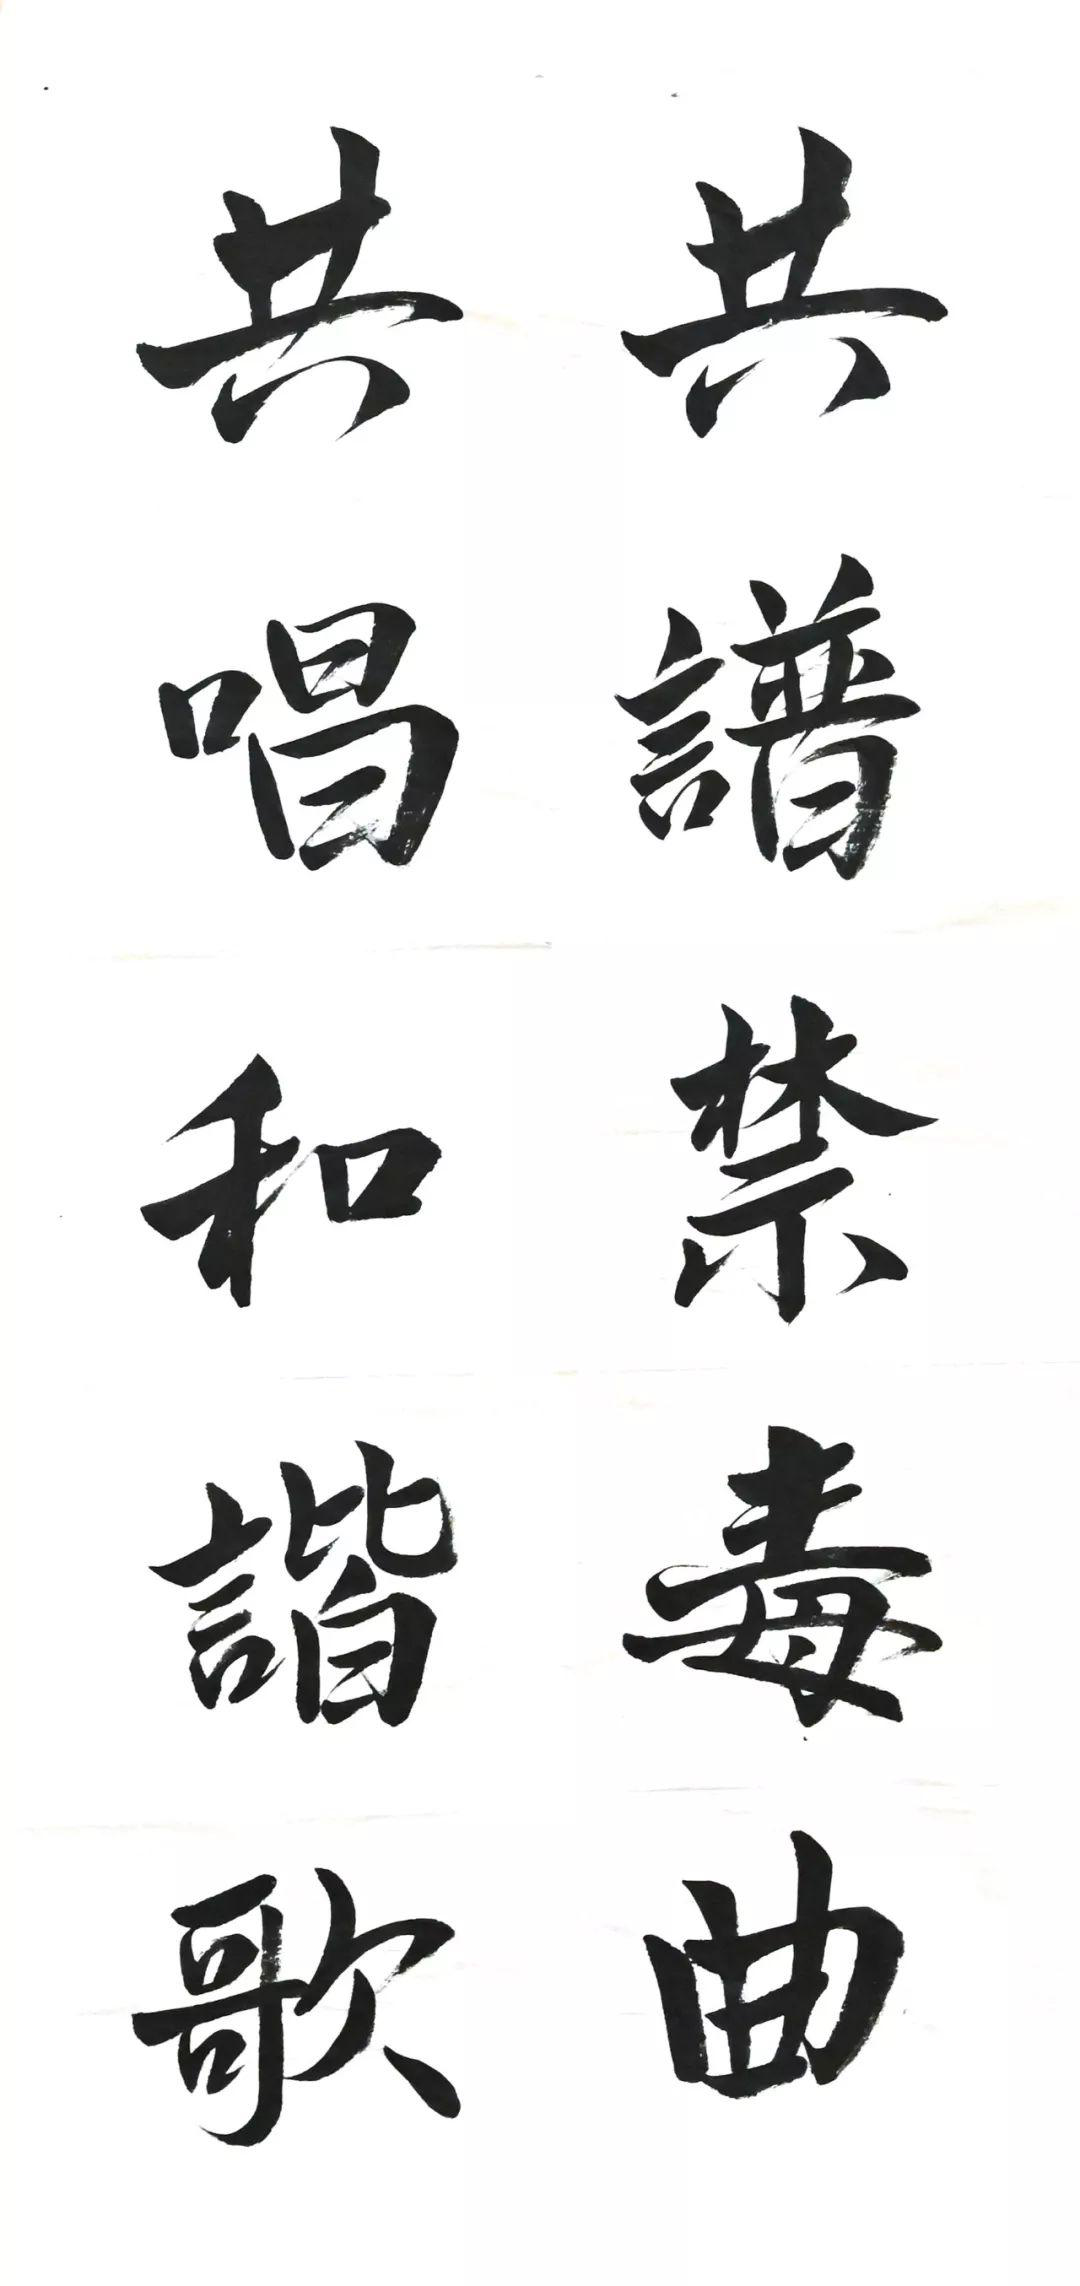 共譜禁毒曲
共唱和諧歌